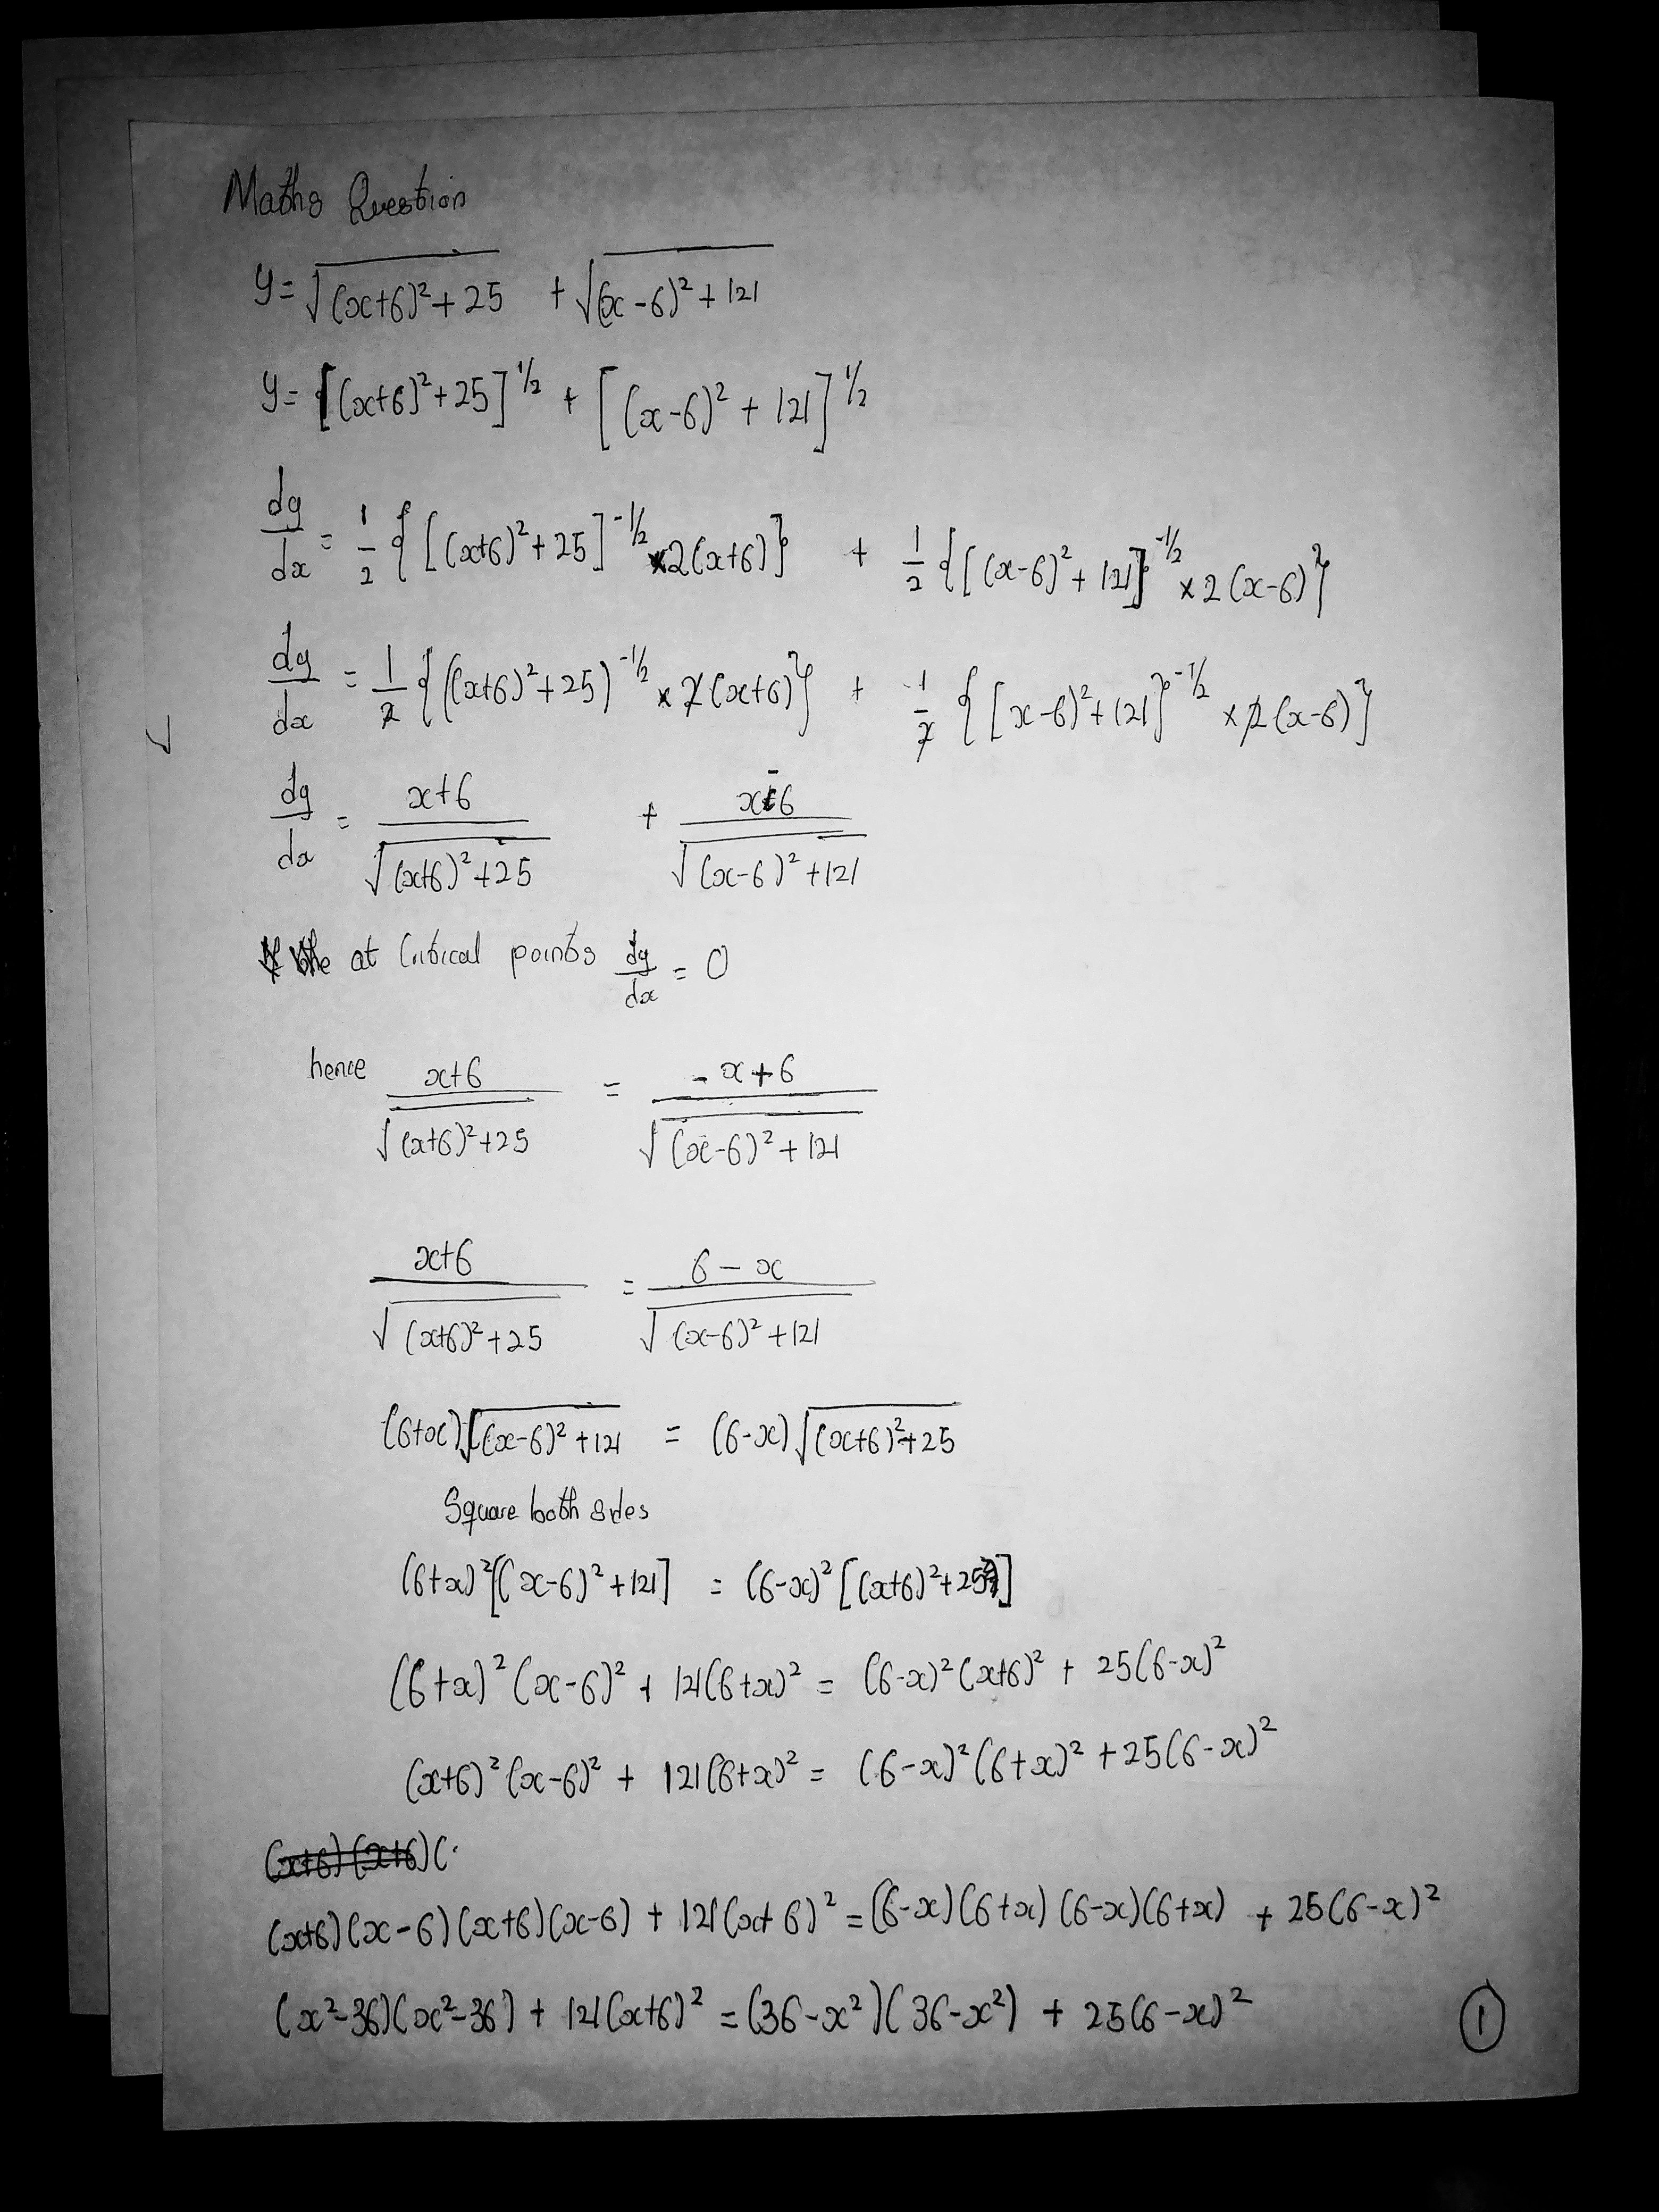 Maths Question
y = √((x+6)²+25) + √((x-6)²+121)
y = [(x+6)²+25]^1/2 + [(x-6)²+121]^1/2
dy/dx = 1/2 {[(x+6)²+25]^-1/2 × 2(x+6)} + 1/2 {[(x-6)²+121]^-1/2 × 2(x-6)}
dy/dx = 1/2 {((x+6)²+25)^-1/2 × 2(x+6)} + 1/2 {[x-6)²+121]^-1/2 × 2(x-6)}
dy/dx = (x+6)/√((x+6)²+25) + (x-6)/√((x-6)²+121)
the at Critical points dy/dx = 0
hence (x+6)/√((x+6)²+25) = (-x+6)/√((x-6)²+121)
(x+6)/√((x+6)²+25) = (6-x)/√((x-6)²+121)
(6+x)√((x-6)²+121) = (6-x)√((x+6)²+25)
Square both sides
(6+x)²[(x-6)²+121] = (6-x)²[(x+6)²+25]
(6+x)²(x-6)² + 121(6+x)² = (6-x)²(x+6)² + 25(6-x)²
(x+6)²(x-6)² + 121(6+x)² = (6-x)²(6+x)² + 25(6-x)²
(x+6)(x+6)(
(x+6)(x-6)(x+6)(x-6) + 121(x+6)² = (6-x)(6+x)(6-x)(6+x) + 25(6-x)²
(x²-36)(x²-36) + 121(x+6)² = (36-x²)(36-x²) + 25(6-x)²
1